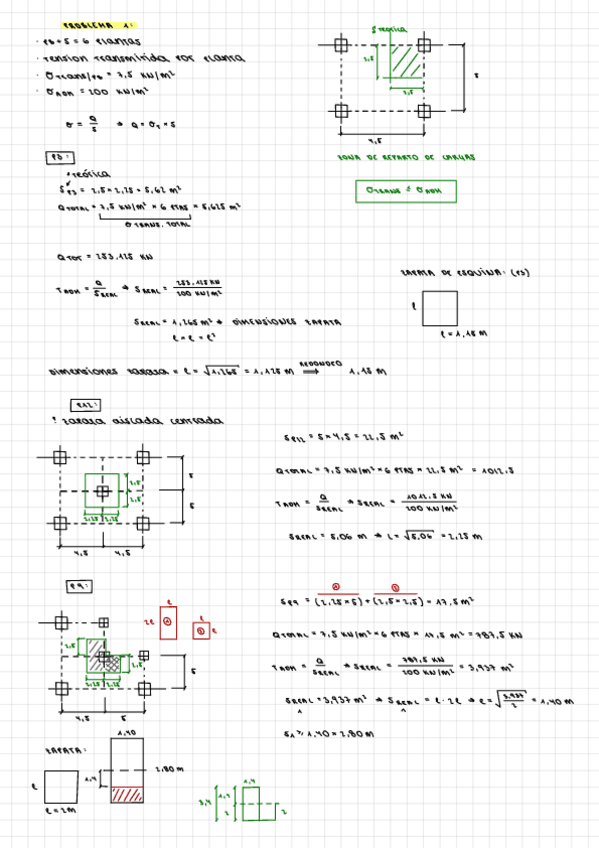 PROBLEMA 1:
· PB + 5 = 6 PLANTAS
· TENSION TRANSMITIDA POR PLANTA
· σTRANS/PB = 7,5 KN/m²
· σADM = 200 KN/m²
σ = Q/S ⇒ Q = σT × S
S TEÓRICA
2,5
2,5
5
4,5
ZONA DE REPARTO DE CARGAS
σTRANS ≤ σADM
P3:
TEÓRICA
SP3 = 2,5 × 2,25 = 5,62 m²
QTOTAL = 7,5 KN/m² × 6 PTAS × 5,625 m²
σ TRANS. TOTAL
QTOT = 253,125 KN
TADM = Q/SREAL ⇒ SREAL = 253,125 KN / 200 KN/m²
SREAL = 1,265 m² ⇒ DIMENSIONES ZAPATA
l × l = l²
DIMENSIONES ZAPATA = l = √1,265 = 1,125 m REDONDEO ⟹ 1,15 m
ZAPATA DE ESQUINA: (P3)
l
l = 1,15 m
P12:
! ZAPATA AISLADA CENTRADA
2,5
2,5
2,25 2,25
5
5
4,5 4,5
SP12 = 5 × 4,5 = 22,5 m²
QTOTAL = 7,5 KN/m² × 6 PTAS × 22,5 m² = 1012,5
TADM = Q/SREAL ⇒ SREAL = 1012,5 KN / 200 KN/m²
SREAL = 5,06 m ⇒ L = √5,06 = 2,25 m
P9:
2,5
2,5
2,25 2,5
5
4,5 5
2l ① l
② l l
① ②
SP9 = (2,25 × 5) + (2,5 × 2,5) = 17,5 m²
QTOTAL = 7,5 KN/m² × 6 PTAS × 17,5 m² = 787,5 KN
TADM = Q/SREAL ⇒ SREAL = 787,5 KN / 200 KN/m² = 3,937 m²
SREAL1 = 3,937 m² ⇒ SREAL1 = l · 2l ⇒ l = √3,937/2 = 1,40 m
S1 ⇒ 1,40 × 2,80 m
ZAPATA:
l
l = 2m
1,40
1,4
2,80 m
1,4
3,4 1,4
2 2